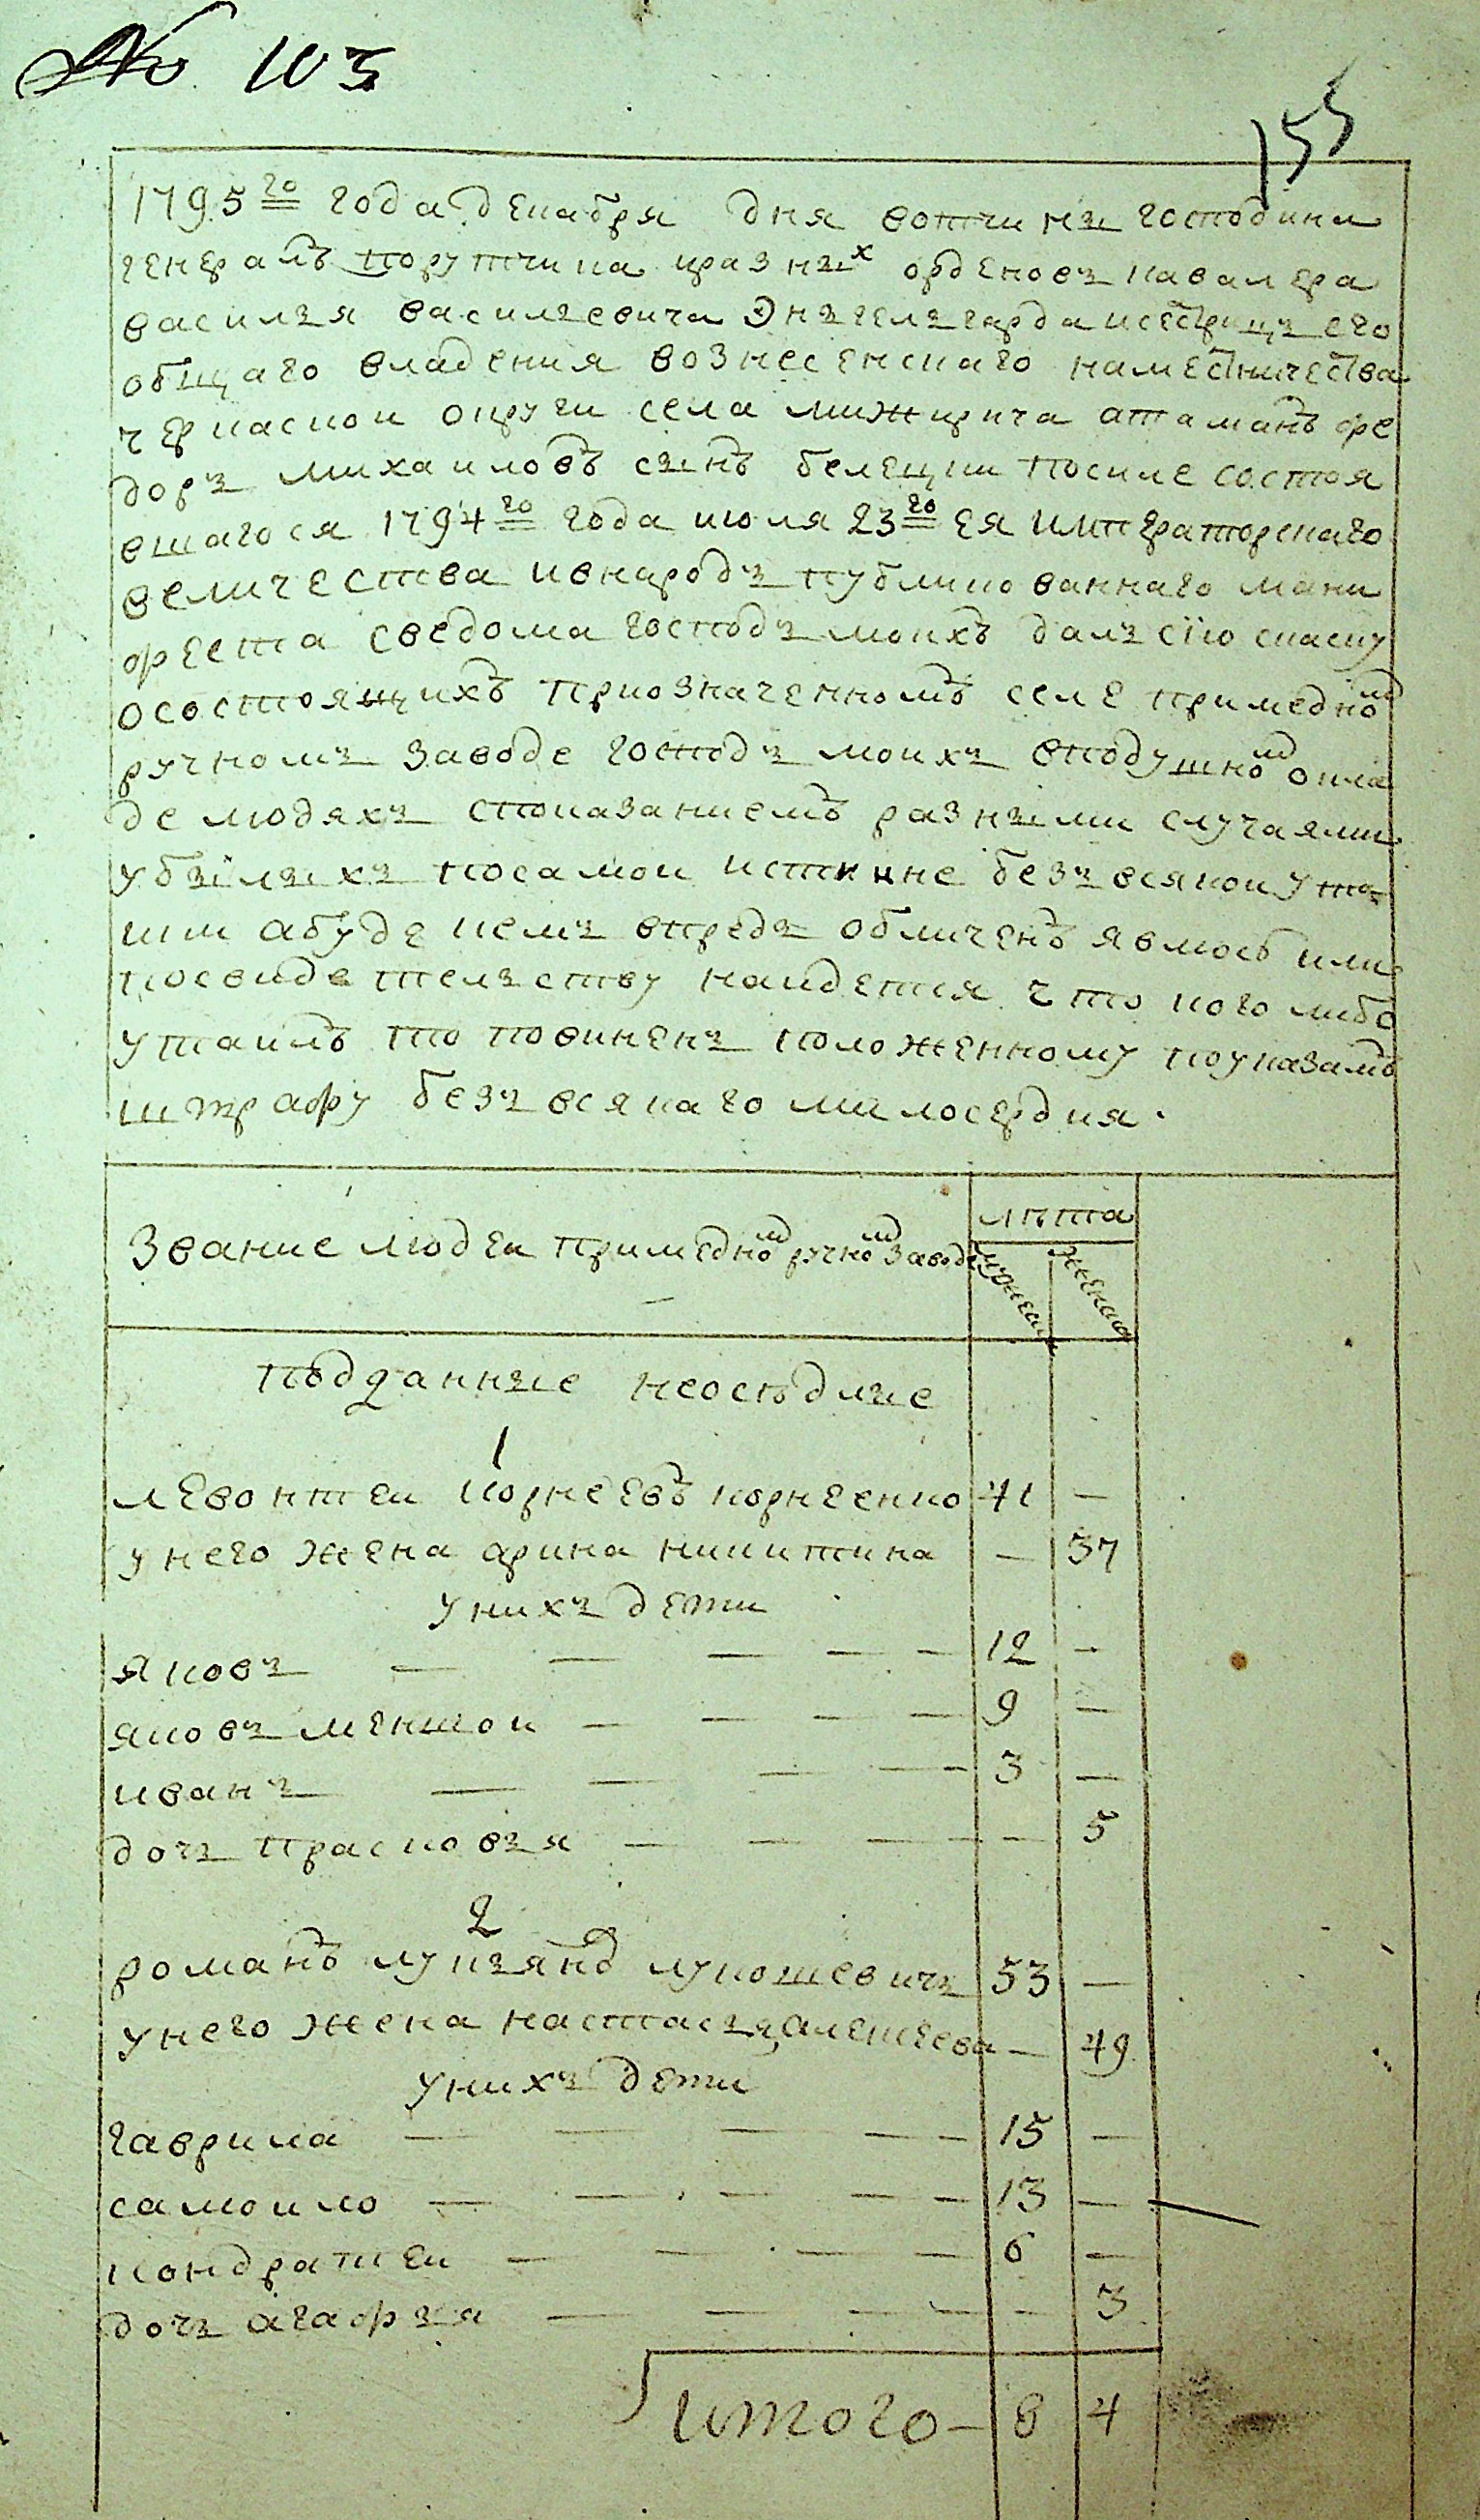 № 103
155
1795го года декабря дня вотчины господина
генералъ порутчика иразныхъ орденовъ кавалера
василья васильевича Энгельгарда исестрицъ его
общаго владения вознесенскаго наместничества
черкаскои округи села мижирича атаманъ фе
доръ михаиловъ сынъ белецки посиле состоя
вшагося 1794го года июля 23го Ея императорскаго
величества ивнародъ публикованнаго мани
феста сведома господъ моихъ далъ сїю скаску
осостоящихъ приозначенномъ селе примедном
ручномъ заводе господъ моихъ вподушном окла
де людяхъ споказаниемъ разными случаями
убылыхъ посамои истинне безъ всякои ута
ики абуде чемъ впредь обличенъ явлюсь или
посвидетельству наидется что кого либо
утаилъ то повиненъ положенному поуказамъ
штрафу безъ всякаго милосердия.
Звание людеи примедном ручном заводе
лѣта
мужеска
женска
подданные неоседлые
1
левонтеи корнеевъ корнеенко 41 —
у него жена арина никитина — 37
у нихъ дети
яковъ — — — — — 12 —
яковъ меншои — — — — 9 —
иванъ — — — — 3 —
дочь прасковья — — — — 5
2
романъ лукьяновъ лукошевичъ 53 —
у него жена настасья алексеева — 49
у нихъ дети
гаврила — — — — — 15 —
самоило — — — — — 13 —
кондратеи — — — — 6 —
дочь агафья — — — — — 3
итого — 8 4